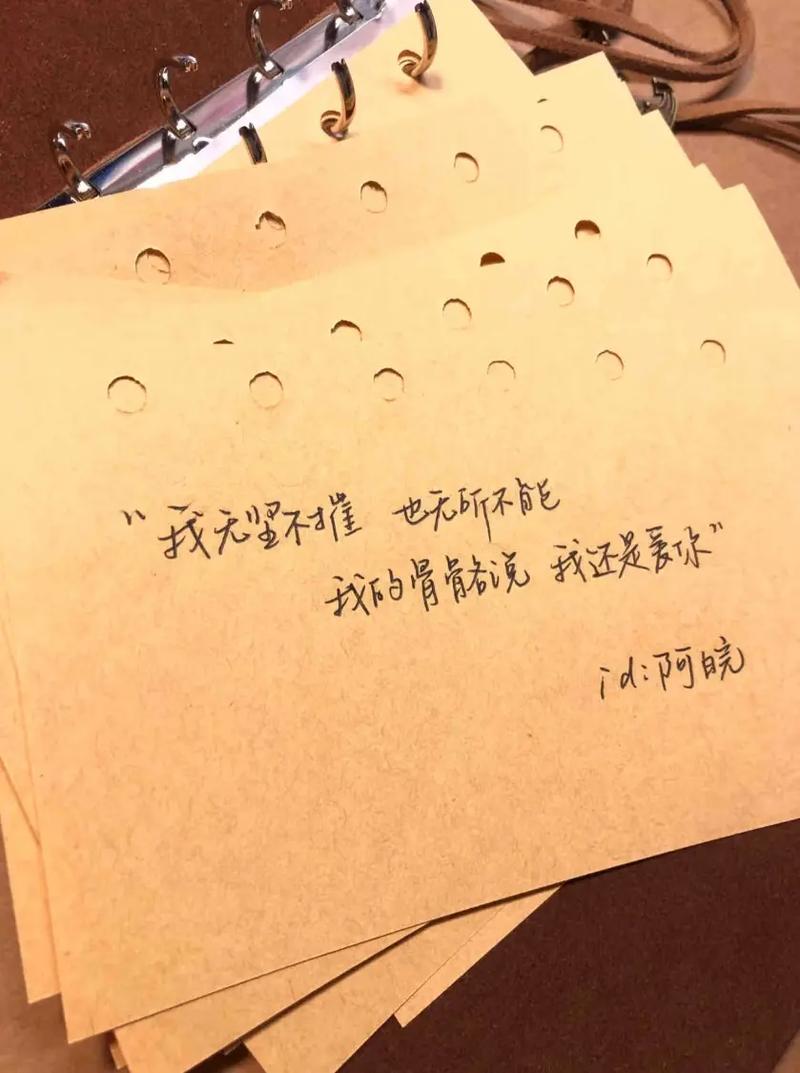 "我无坚不摧 也无所不能
我的骨骼说 我还是爱你"
id:阿皖